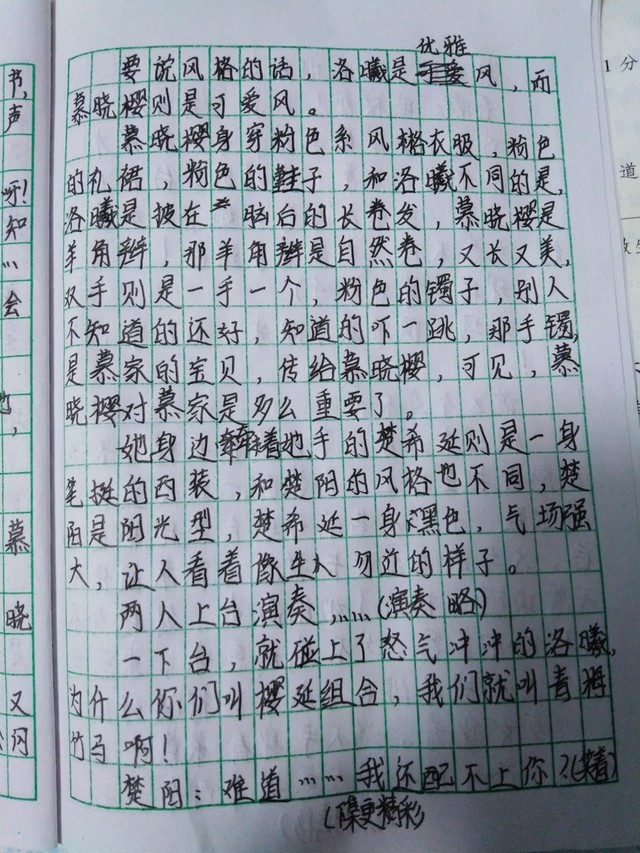 优雅
要说风格的话，洛曦是风，而
慕晓樱则是可爱风。
慕晓樱身穿粉色系风格衣服，粉色
的礼裙，粉色的鞋子，和洛曦不同的是，
洛曦是披在脑后的长卷发，慕晓樱是
羊角辫，那羊角辫是自然卷，又长又美，
双手则是一手一个，粉色的镯子，别人
不知道的还好，知道的吓一跳，那手镯，
是慕家的宝贝，传给慕晓樱，可见，慕
晓樱对慕家是多么重要了。
她身边牵着她手的楚希延则是一身
笔挺的西装，和楚阳的风格也不同，楚
阳是阳光型，楚希延一身黑色，气场强
大，让人看着像生人勿近的样子。
两人上台演奏……(演奏略)
一下台，就碰上了怒气冲冲的洛曦，
为什么你们叫樱延组合，我们就叫青梅
竹马啊！
楚阳：难道……我还配不上你？(笑着)
更精彩
书，
声
呀！
知
……
会
，
慕
晓
又
1 分
道